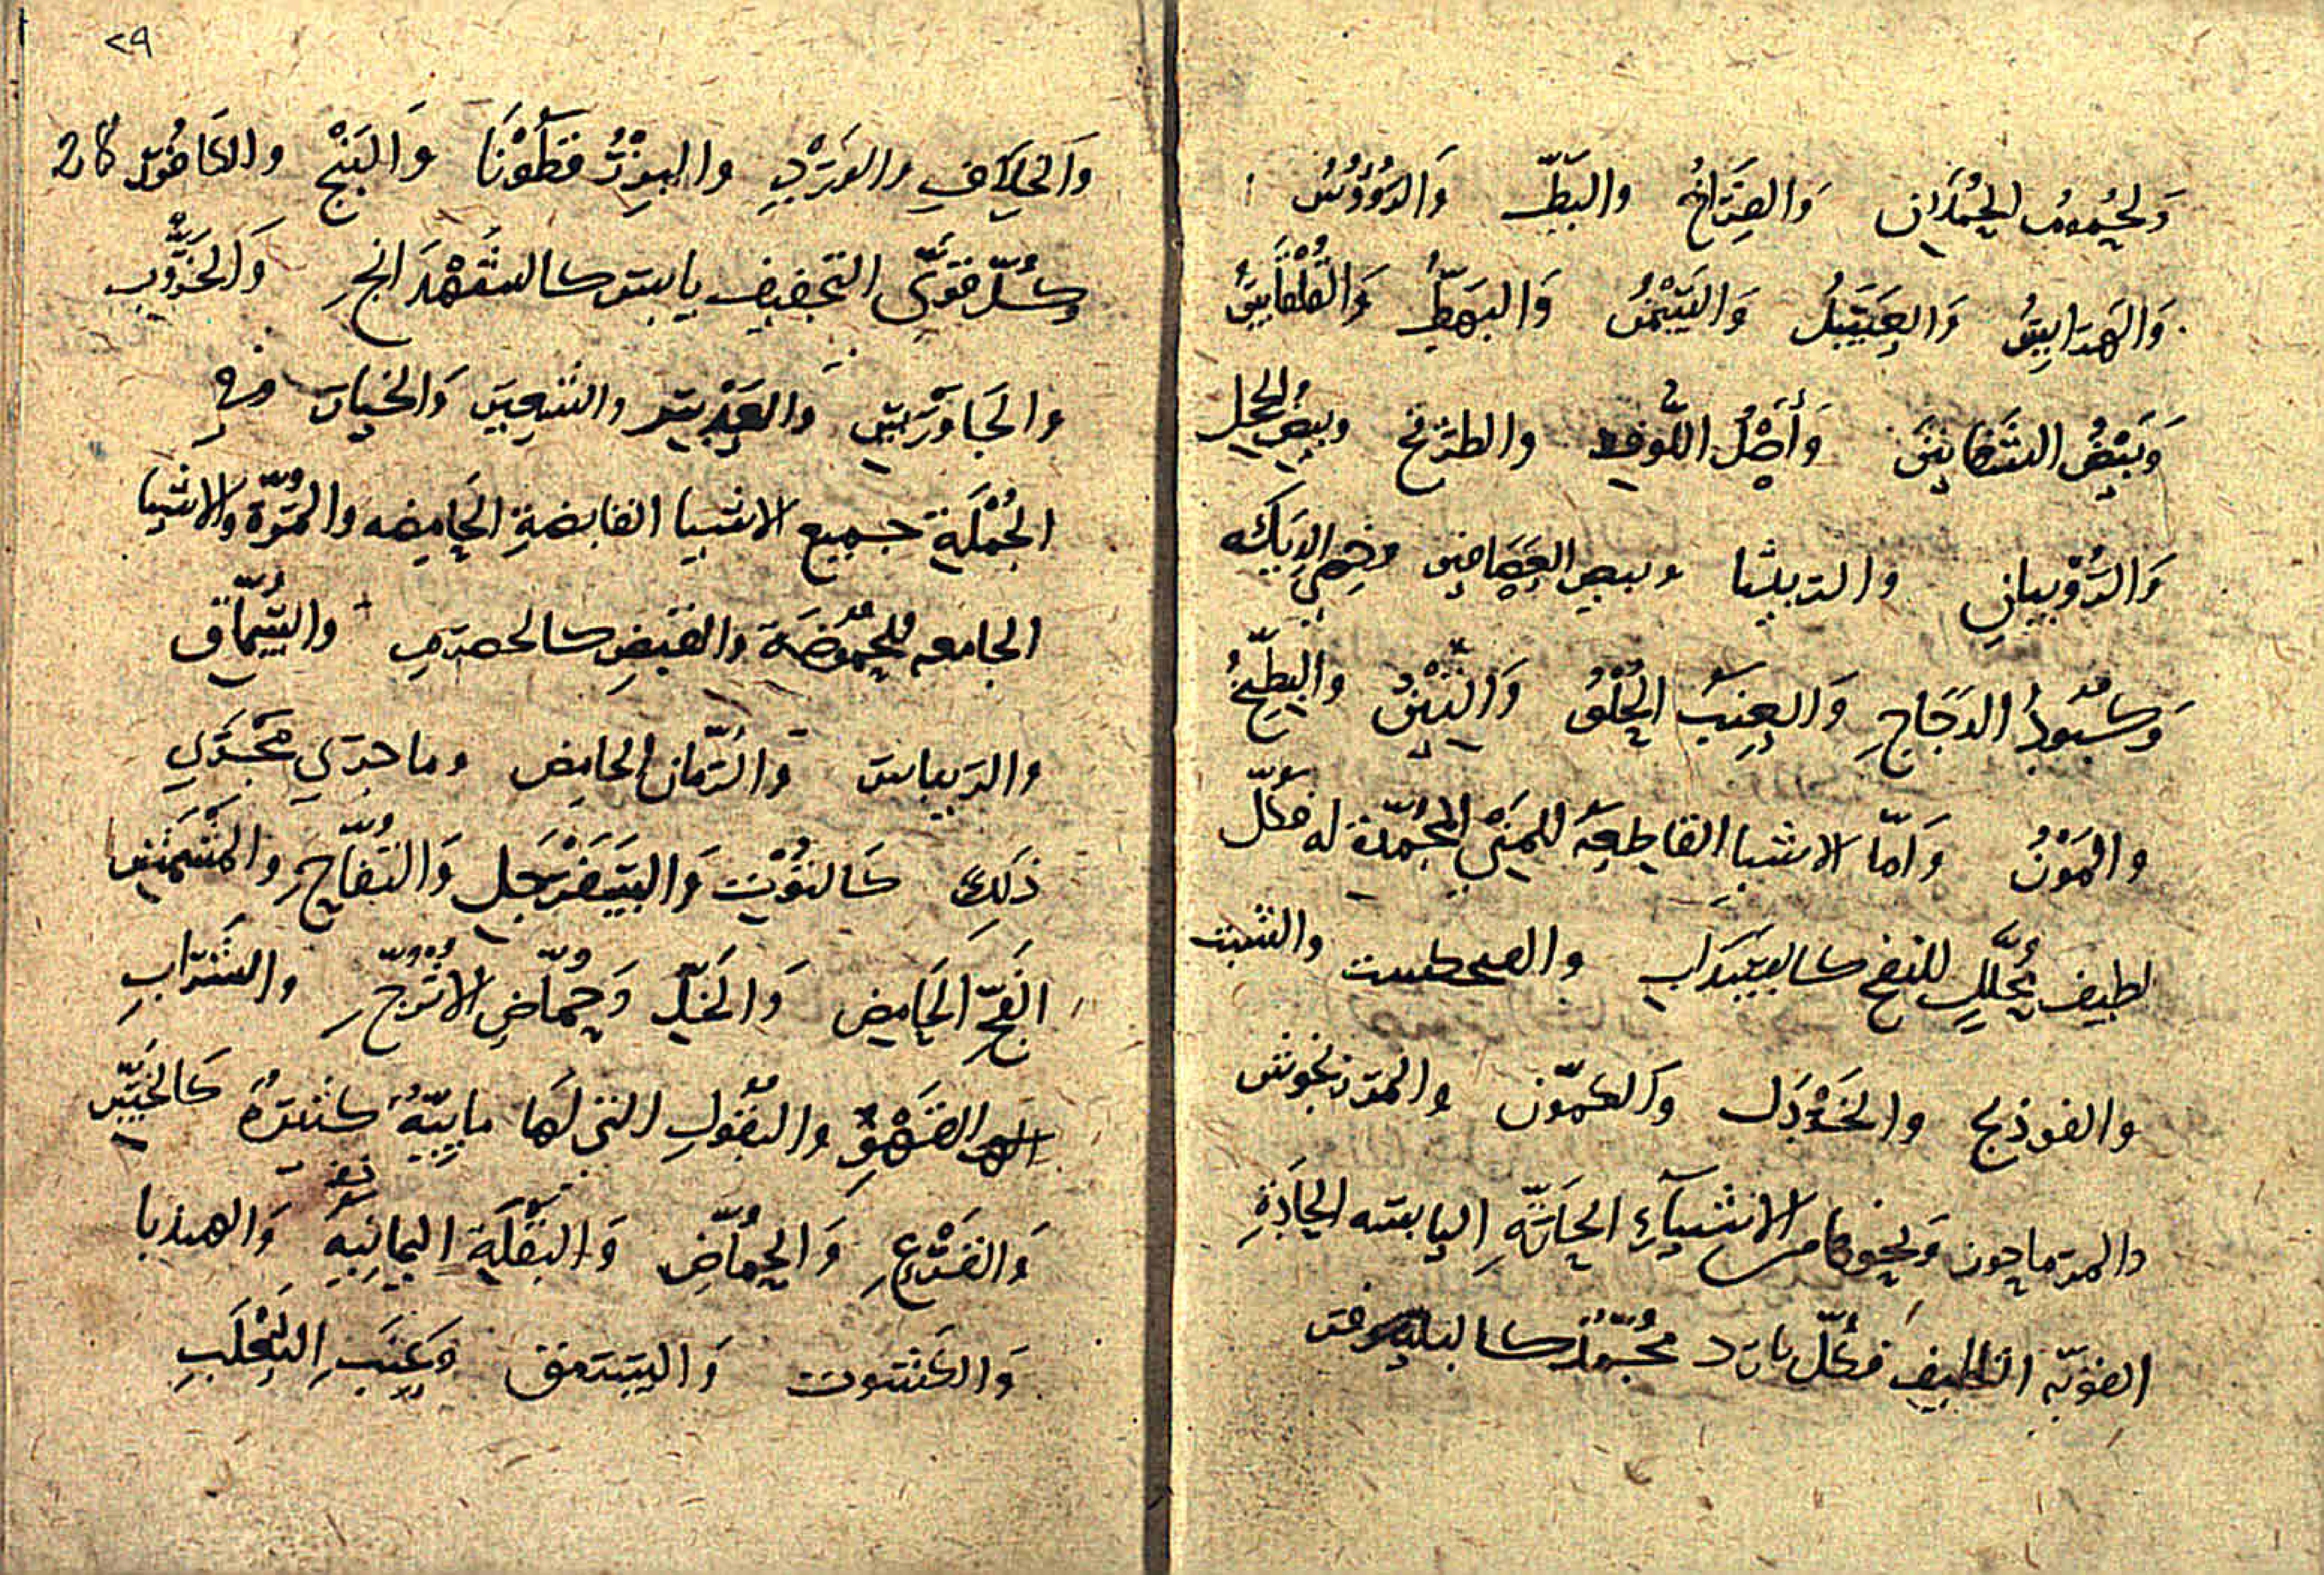 وَلُحُومُ الحُمْلَانِ وَالفِرَاخُ والبَطِّ وَالرُّؤُوسُ
وَالهَرَايِسُ وَالعَسَلُ وَالسَّمْنُ وَالبَهَطُّ وَالقَلْقَاسُ
وَبَيْضُ الشَّفَانِينَ وَأَصْلُ اللُّوفِ والطريخ وبيض الحجل
وَالرُّوْبِيانِ والربيثا وبيض العَصَافِير وخصي الدِيَكه
وَكُبُودُ الدَجَاجِ وَالعِنَبُ الحُلْوُ وَالتِّيْنُ والبِطِّيخُ
والمَوْزُ وَأمّا الاشيا القاطِعَه للمَنِي المُجَمِّدَة له فكُلّ
لطيف مُحَلِّلٍ للنفخ كالسَدَابِ والشبت
والفوذنج والخَرْدَل وَالكمّون والمرزنجوش
والمرماحوز وَنحوها من الاشيآءِ الحَارّةِ اليابسه الحادّةِ
القويّه التلطيفِ فكلّ بارد مُجَمِّدٌ كالنيلوفر
٢٩
وَالخِلَافِ والوَرْدِ والبِزْرُ قَطُوْنَا وَالبَنْجِ والكَافُور
وكُلّ قوَيّ التجفيف يابس كالشَهْدَانج وَالخَرُّوب
والجَاوَرْس والعَدَس والشعِير وَالخيار وفي
الجُمْلَةِ جميع الاشيا القابضةِ الحَامِضه والمُرّة والاشيا
الجامعه للحُمُوضَة والقَبْضِ كالحصرم والسُّمَّاق
والريباس وَالرُّمان الحامِض وما جرى مَجْرَي
ذلك كَالتُوْت وَالسَفَرْجَل وَالتُفّاحِ والمِشمش
الفَجّ الحَامِض وَالخَلّ وَحُمّاضِ الأُتْرُجّ والشَرَاب
القَهْوِ والبُقُولِ التي لَهَا مايِيّةٌ كثيرَةٌ كَالخَسّ
وَالقَرْعِ وَالحُمّاضِ وَالبَقْلَةِ اليَمانِيَّه وَالهندبا
وَالكشوت وَالسرمق وَعِنَبِ الثَعْلَبِ